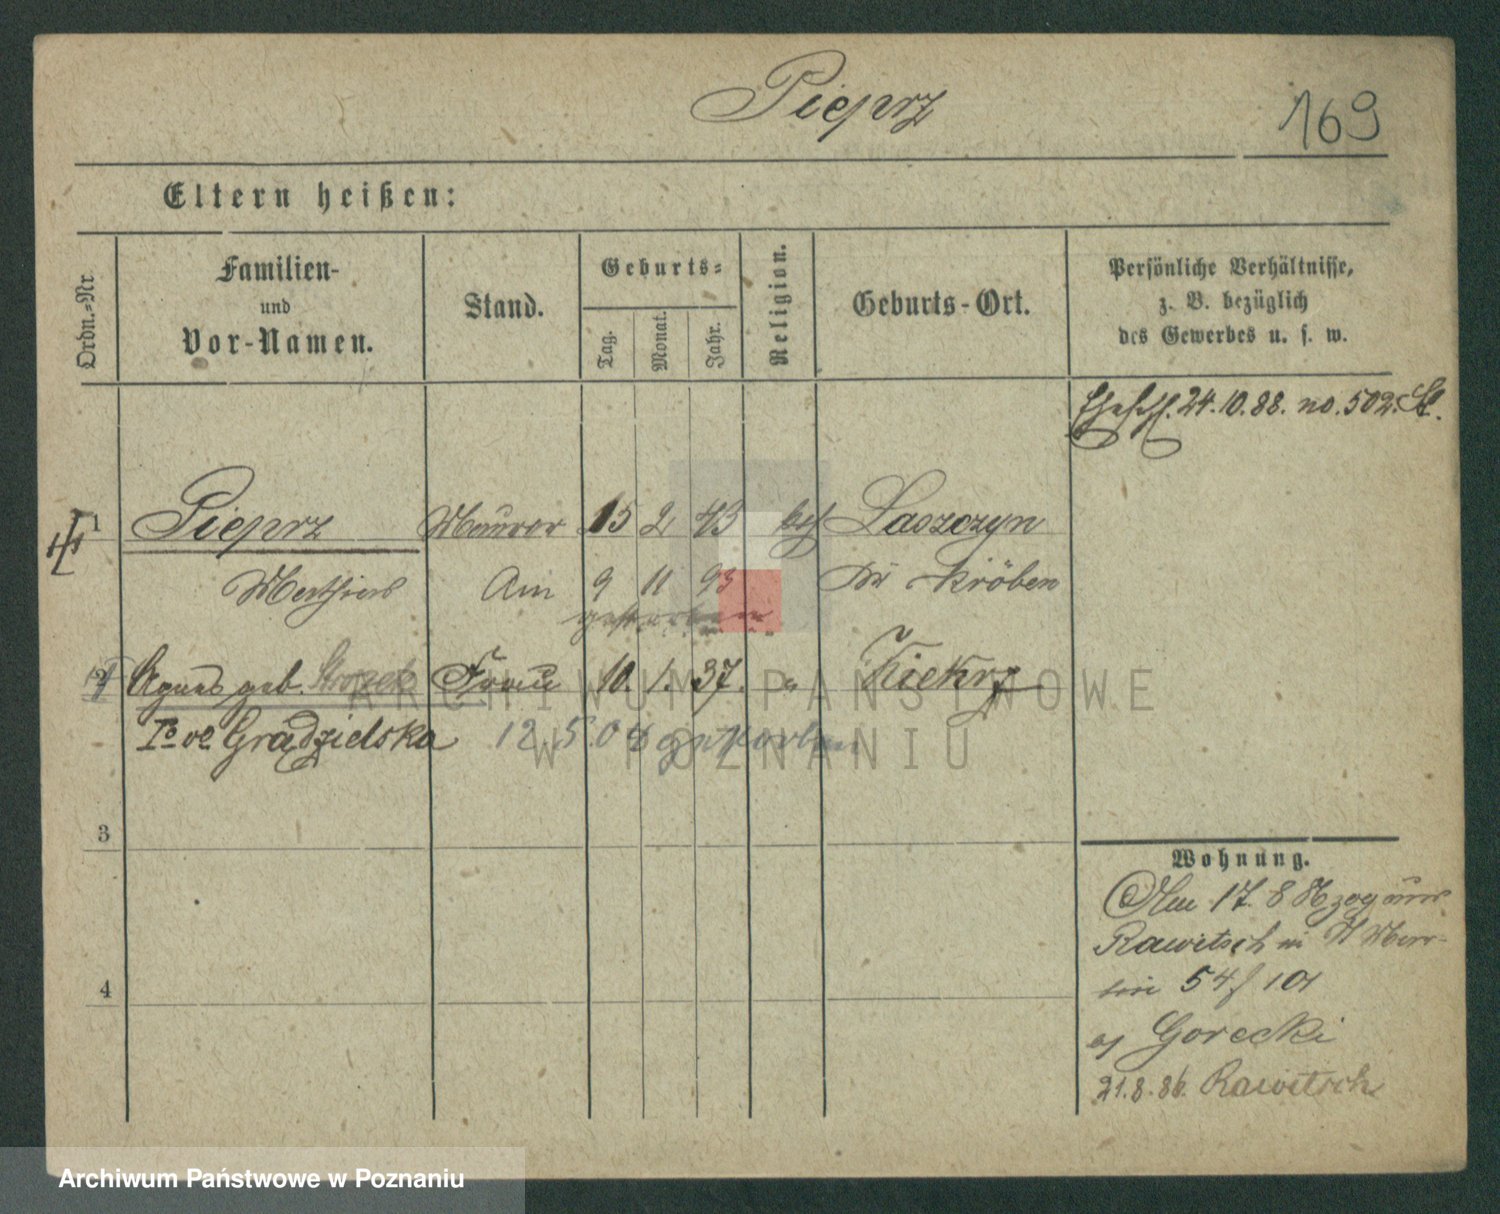 Pieprz
169
Eltern heißen:
Ordn.-Nr.
Familien-
und
Vor-Namen.
Stand.
Geburts-
Tag.
Monat.
Jahr.
Religion.
Geburts-Ort.
Persönliche Verhältnisse,
z. B. bezüglich
des Gewerbes u. s. w.
24.10.88. no. 502.
1 Pieprz Maurer 15 2 43 Laszczyn
Am 9 11 93 Kröben
gestorben
2 Agnes geb. Frau 10. 1. 37. Kiekrz
Io vo Grądzielska 12 5. 04 gestorben
3
4
Wohnung.
17. 8
Rawitsch
54 101
Gorecki
21.8.86. Rawitsch
ARCHIWUM PAŃSTWOWE
W POZNANIU
Archiwum Państwowe w Poznaniu